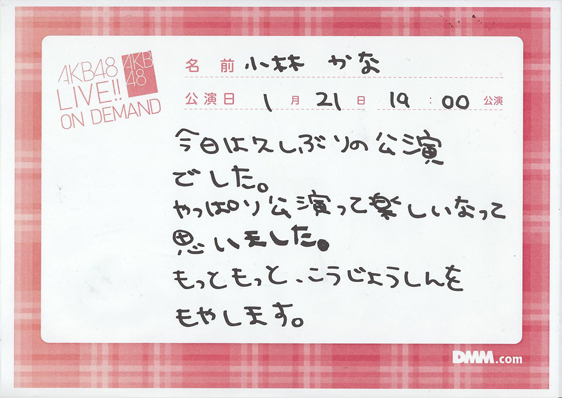 AKB48
LIVE!!
ON DEMAND
AKB
48
名前 小林 かな
公演日 1月21日 19:00公演
今日は久しぶりの公演
でした。
やっぱり公演って楽しいなって
思いました。
もっともっと、こうじょうしんを
もやします。
DMM.com